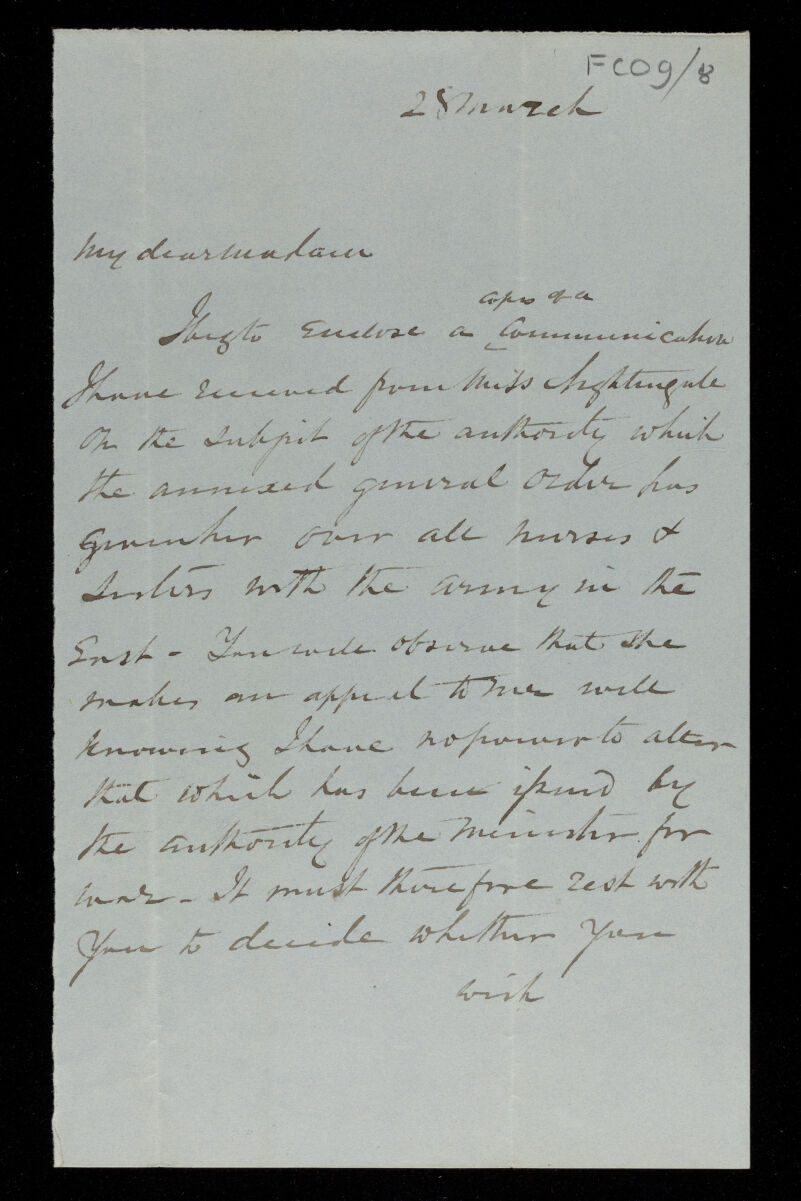 FC09/8
28 March
My dear Madam
copy of a
I beg to enclose a Communication
I have received from Miss Nightingale
on the subject of the authority which
the annexed general order has
given her over all nurses &
Sisters with the army in the
East - You will observe that she
makes an appeal to me well
knowing I have no power to alter
that which has been issued by
the authority of the Minister for
war - It must therefore rest with
You to decide whether You
wish